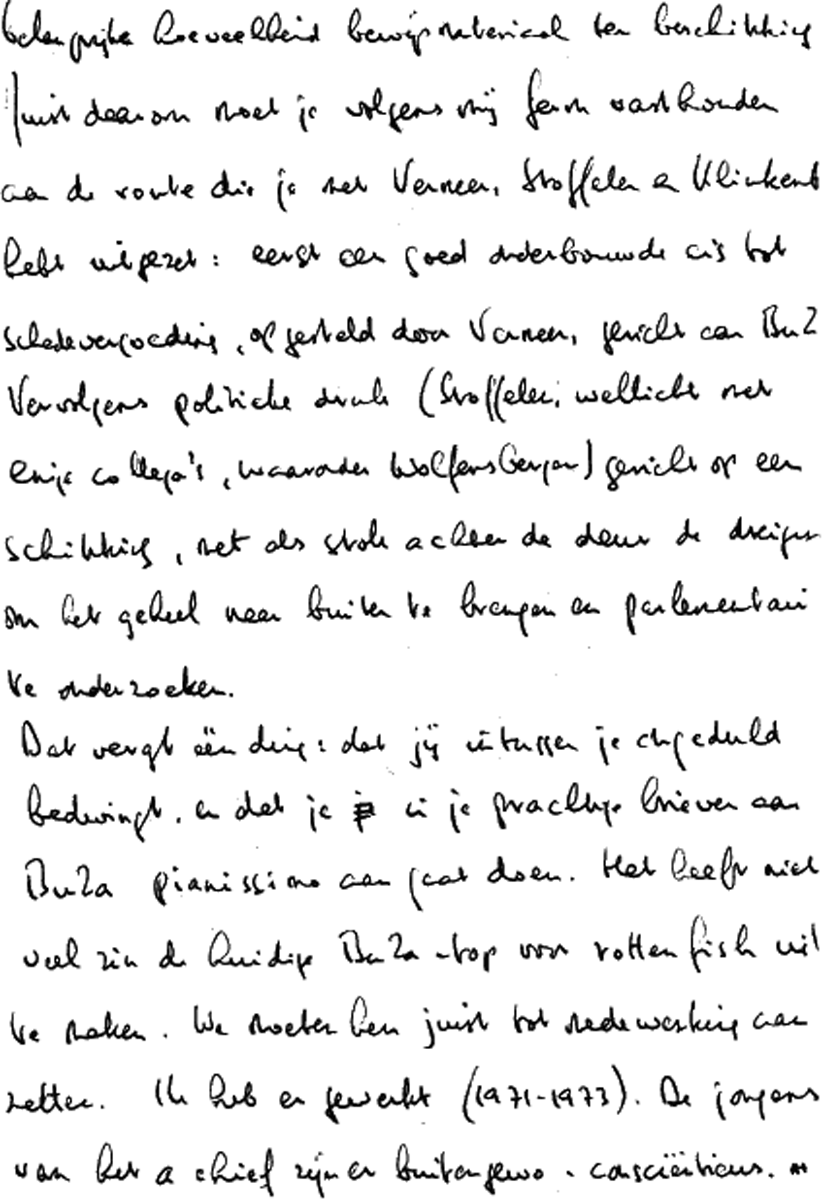 belangrijke hoeveelheid bewijsmateriaal ter beschikking
Juist daarom moet je volgens mij ferm vasthouden
aan de route die je met Vermeer, Stoffelen en Klinkenb
hebt uitgezet: eerst een goed onderbouwde eis tot
schadevergoeding, opgesteld door Vermeer, gericht aan BuZ
Vervolgens politieke druk (Stoffelen, wellicht met
enige collega's, waaronder Wolffensperger) gericht op een
schikking, met als stok achter de deur de dreigen
om het geheel naar buiten te brengen en parlementair
te onderzoeken.
Dat vergt één ding: dat jij intussen je ongeduld
bedwingt, en dat je in je prachtige brieven aan
BuZa pianissimo aan gaat doen. Het heeft niet
veel zin de huidige BuZa-top voor rotten fish uit
te maken. We moeten hen juist tot medewerking aan
zetten. Ik heb er gewerkt (1971-1973). De jongens
van het a chief zijn er buitengewo. consciëntieus.